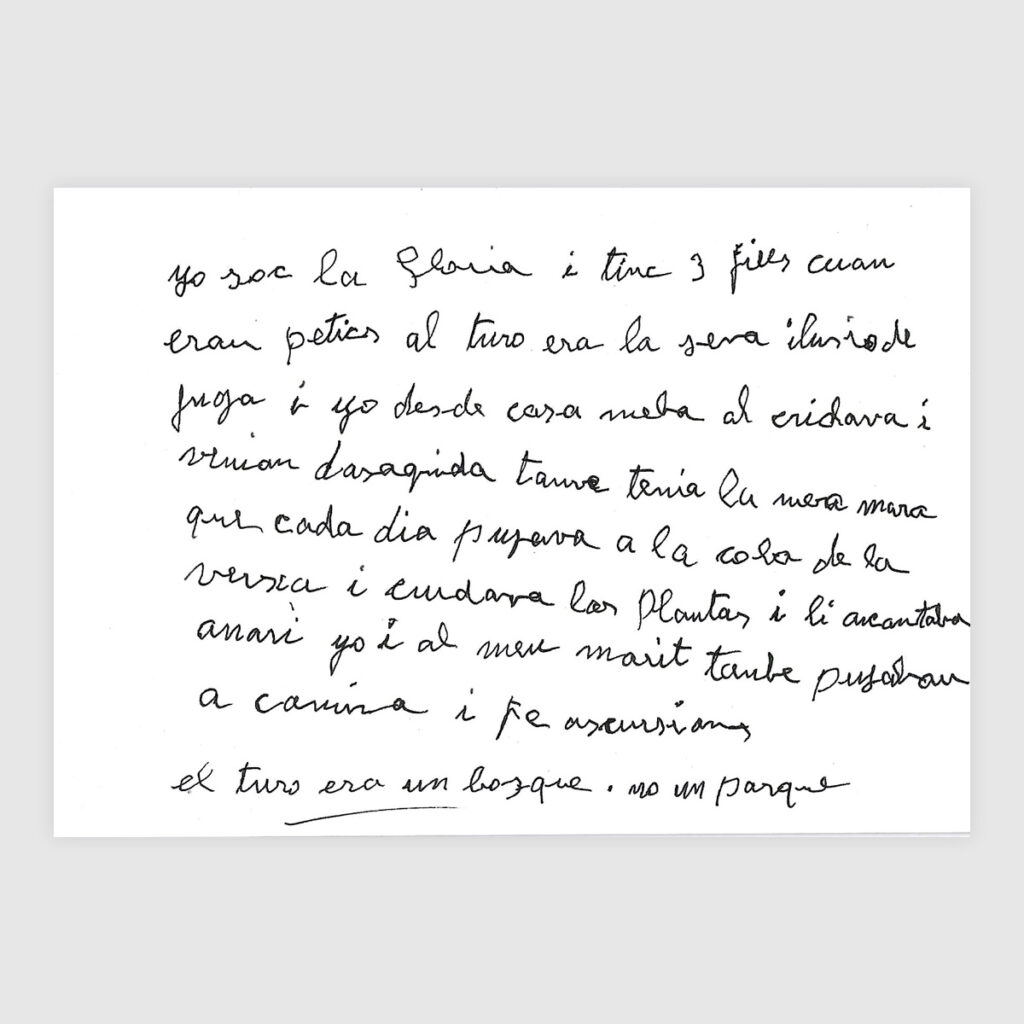 yo soc la Gloria i tinc 3 fills cuan
eran petics al turo era la seva ilusio de
juga i yo desde casa meba al cridava i
venian dasaguida tamve tenia la meva mara
que cada dia pujava a la coba de la
versea i cuidava las Plantas i li ancantaba
anari yo i al meu marit tanbe pujaban
a camina i fe ascursions
el turo era un bosque. no un parque